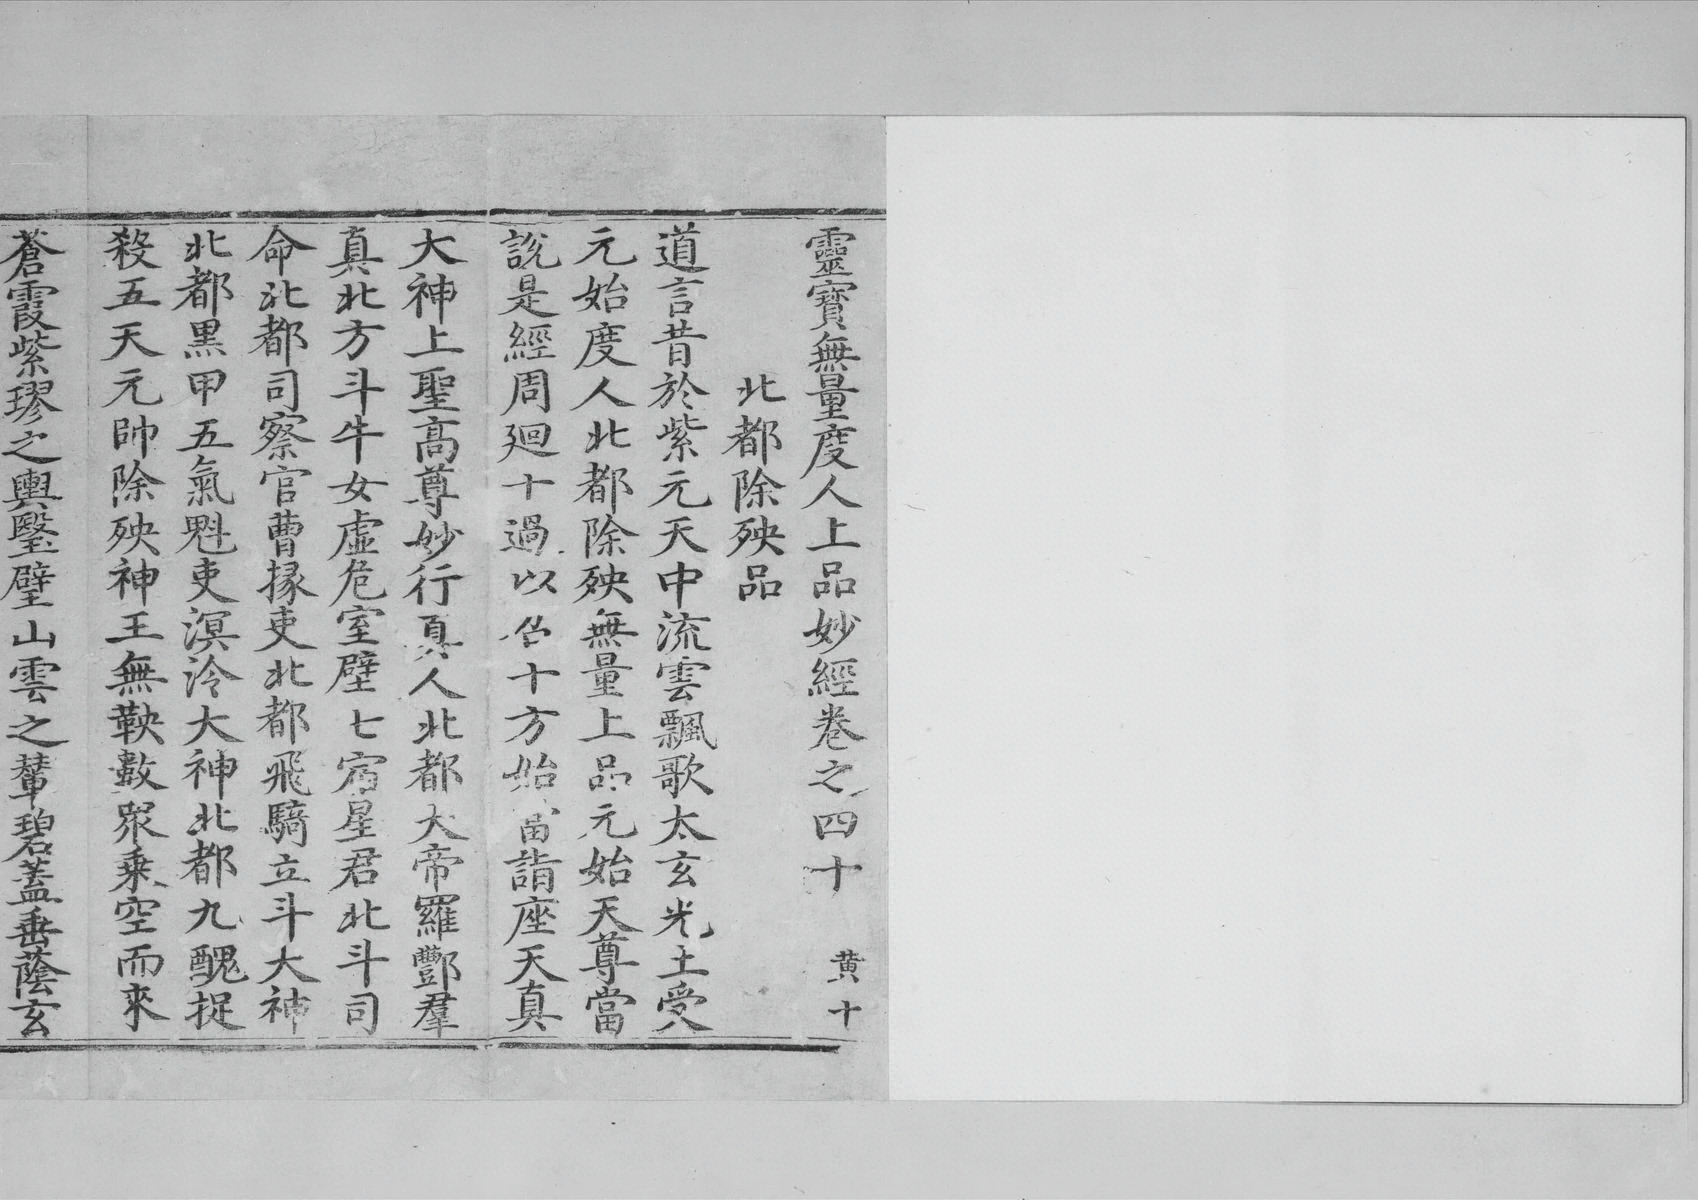 靈寶無量度人上品妙經卷之四十 黄十
北都除殃品
道言昔於紫元天中流雲飄歌太玄光土受
元始度人北都除殃無量上品元始天尊當
說是經周廻十過以召十方始當詣座天真
大神上聖高尊妙行真人北都大帝羅酆羣
真北方斗牛女虛危室壁七宿星君北斗司
命北都司察官曹掾吏北都飛騎立斗大神
北都黑甲五氣魁吏溟泠大神北都九醜捉
殺五天元帥除殃神王無鞅數眾乗空而來
蒼霞紫璆之輿翳壁山雲之輦碧蓋垂蔭玄